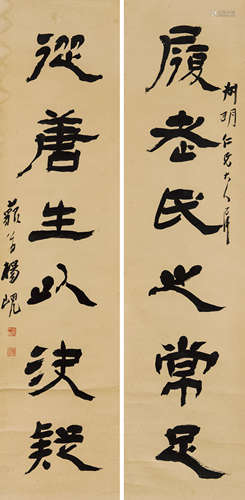 履老氏之常足
明仁兄大人
從善生以決疑
藐翁楊峴